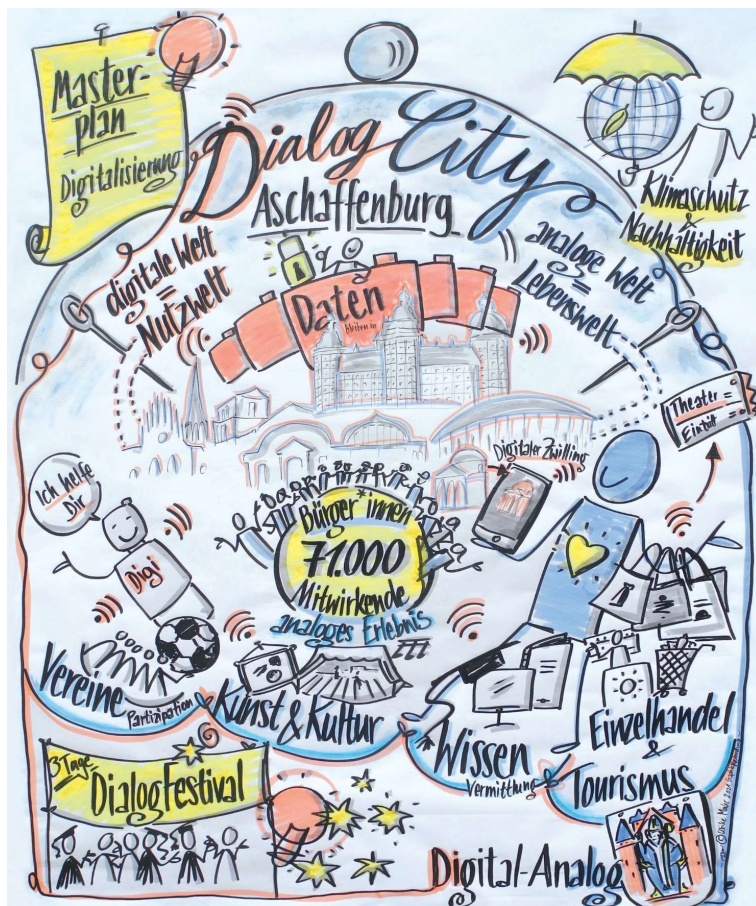 Master-
plan
Digitalisierung
Dialog City
Aschaffenburg
Klimaschutz
&
Nachhaltigkeit
digitale Welt
=
Nutzwelt
Daten
bleiben in
analoge Welt
=
Lebenswelt
Theater =
Eintritt
Digitaler Zwilling
Ich helfe
Dir
Digi
Bürger*innen
71.000
Mitwirkende
analoges Erlebnis
Vereine
Partizipation
Kunst & Kultur
Wissen
Vermittlung
Einzelhandel
&
Tourismus
3 Tage
DialogFestival
Digital-Analog